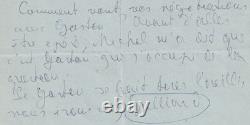 Comment vont vos négociations
avec Gaston? Avant d'aller
être opéré, Michel m'a dit que
c'est Gaston qui s'occupe de la
question.
Le Gaston se fait tirer l'oreille,
nous irons Gallimard